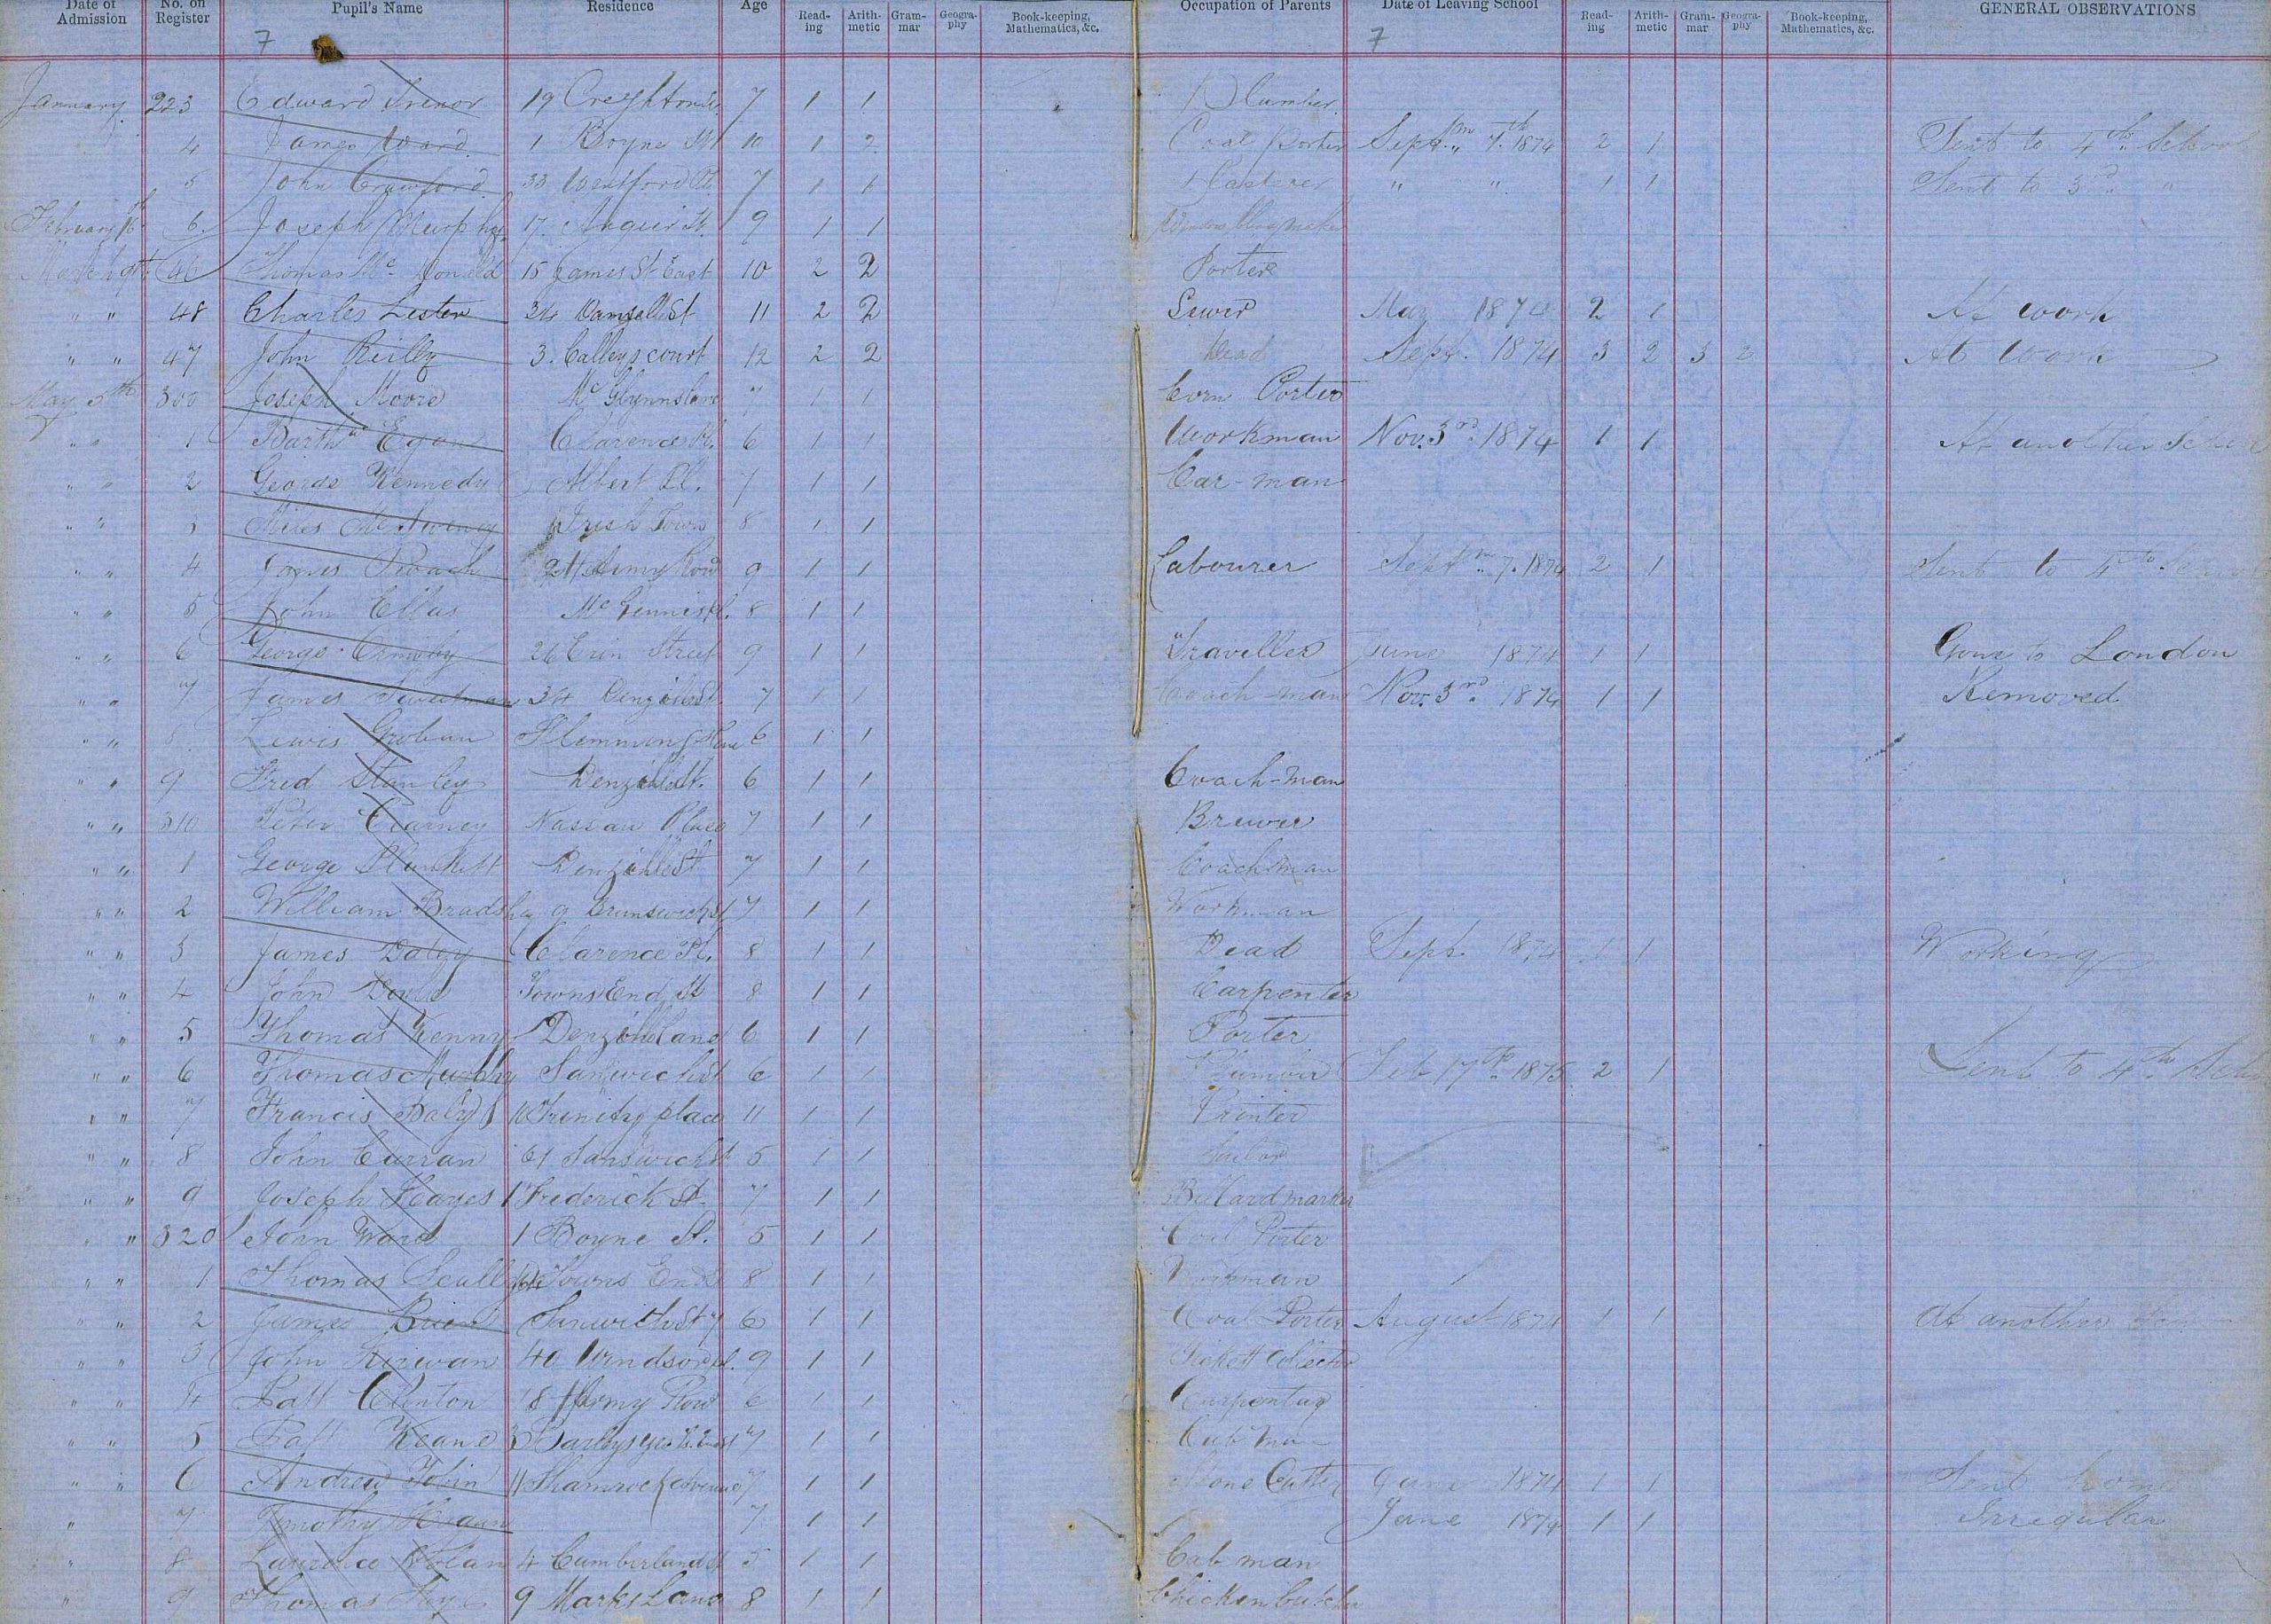 Date of Admission No. on Register Pupil's Name Residence Age Read-ing Arith-metic Gram-mar Geogra-phy Book-keeping, Mathematics, &c. Occupation of Parents Date of Leaving School Read-ing Arith-metic Gram-mar Geogra-phy Book-keeping, Mathematics, &c. GENERAL OBSERVATIONS
7 7
January 223 Edward Trenor 19 Creighton St 7 1 1 Plumber
4 James Ward 1 Boyne St 10 1 2 Coal Porter Septm. 7th 1874 2 1 Sent to 4th School
5 John Crawford 33 Wentford Pl 7 1 1 Plasterer " " 1 1 Sent to 3rd "
February 16th 6 Joseph Murphy 17 Angier St. 9 1 1
March 9th 46 Thomas Mc Donald 15 James St East 10 2 2 Porter
" " 48 Charles Lester 34 11 2 2 Sewer May 1874 2 1 At work
" " 47 John Reilly 3. Calleys court 12 2 2 Dead Sept. 1874 3 2 3 2 At Work
May 5th 300 Joseph Moore Mc Glynns lane 7 1 1 Corn Porter
" " 1 Barthw Egan Clarence Pl. 6 1 1 Workman Nov. 3rd 1874 1 1 At another School
" " 2 George Kennedy Albert Pl. 7 1 1 Car-man
" " 3 Miles Mc Swiney Irish Town 8 1 1
" " 4 James Roach 24 Army Row 9 1 1 Labourer Septm. 7. 1874 2 1 Sent to 4th School
" " 5 John Ellas Mc Gennis pl. 8 1 1
" " 6 George Ormsby 26 Erin Street 9 1 1 Traveller June 1874 1 1 Gone to London
" " 7 James Sweetman 34 Denzille St. 7 1 1 Coach-man Nov. 3rd 1874 1 1 Removed
" " 8 Lewis Groban Flemmings Lane 6 1 1
" " 9 Fred Stanley Denzille St. 6 1 1 Coach-man
" " 310 Peter Kearney Nassau Place 7 1 1 Brewer
" " 1 George Plunkett Denzille St 7 1 1 Coachman
" " 2 William Bradsha 9 Brunswick st 7 1 1 Workman
" " 3 James Daley Clarence Pl. 8 1 1 Dead Sept. 1874 1 1 Working
" " 4 John Doyle Towns End St 8 1 1 Carpenter
" " 5 Thomas Kenny Denzille Lane 6 1 1 Porter
" " 6 Thomas Murphy Sanwich st 6 1 1 Plumber Feb 17th 1875 2 1 Sent to 4th School
" " 7 Francis Daly Trinity place 11 1 1 Printer
" " 8 John Curran 61 Sandwich st 5 1 1 Sailor
" " 9 Joseph Hayes 1 Frederick St. 7 1 1 Billard marker
" " 320 John Ward 1 Boyne St. 5 1 1 Coal Porter
" " 1 Thomas Scully Towns End 8 1 1 Workman
" " 2 James Brien Sanwich St 7 6 1 1 Coal Porter August 1874 1 1 At another School
" " 3 John Kirwan 40 Windsor pl. 9 1 1 Tickett Collector
" " 4 Patt Clinton 18 Army Row 6 1 1 Carpentar
" " 5 Patt Keane 7 1 1 Cab man
" " 6 Andrew Tobin 11 Shamrock avenue 7 1 1 Stone Cutter June 1874 1 1 Sent home
" 7 Timothy 7 1 1 June 1874 1 1 Irregular
" 8 Laurence Nolan 4 Cumberland st 5 1 1 Cab man
" 9 Thomas 9 Marks Lane 8 1 1 Chicken butcher